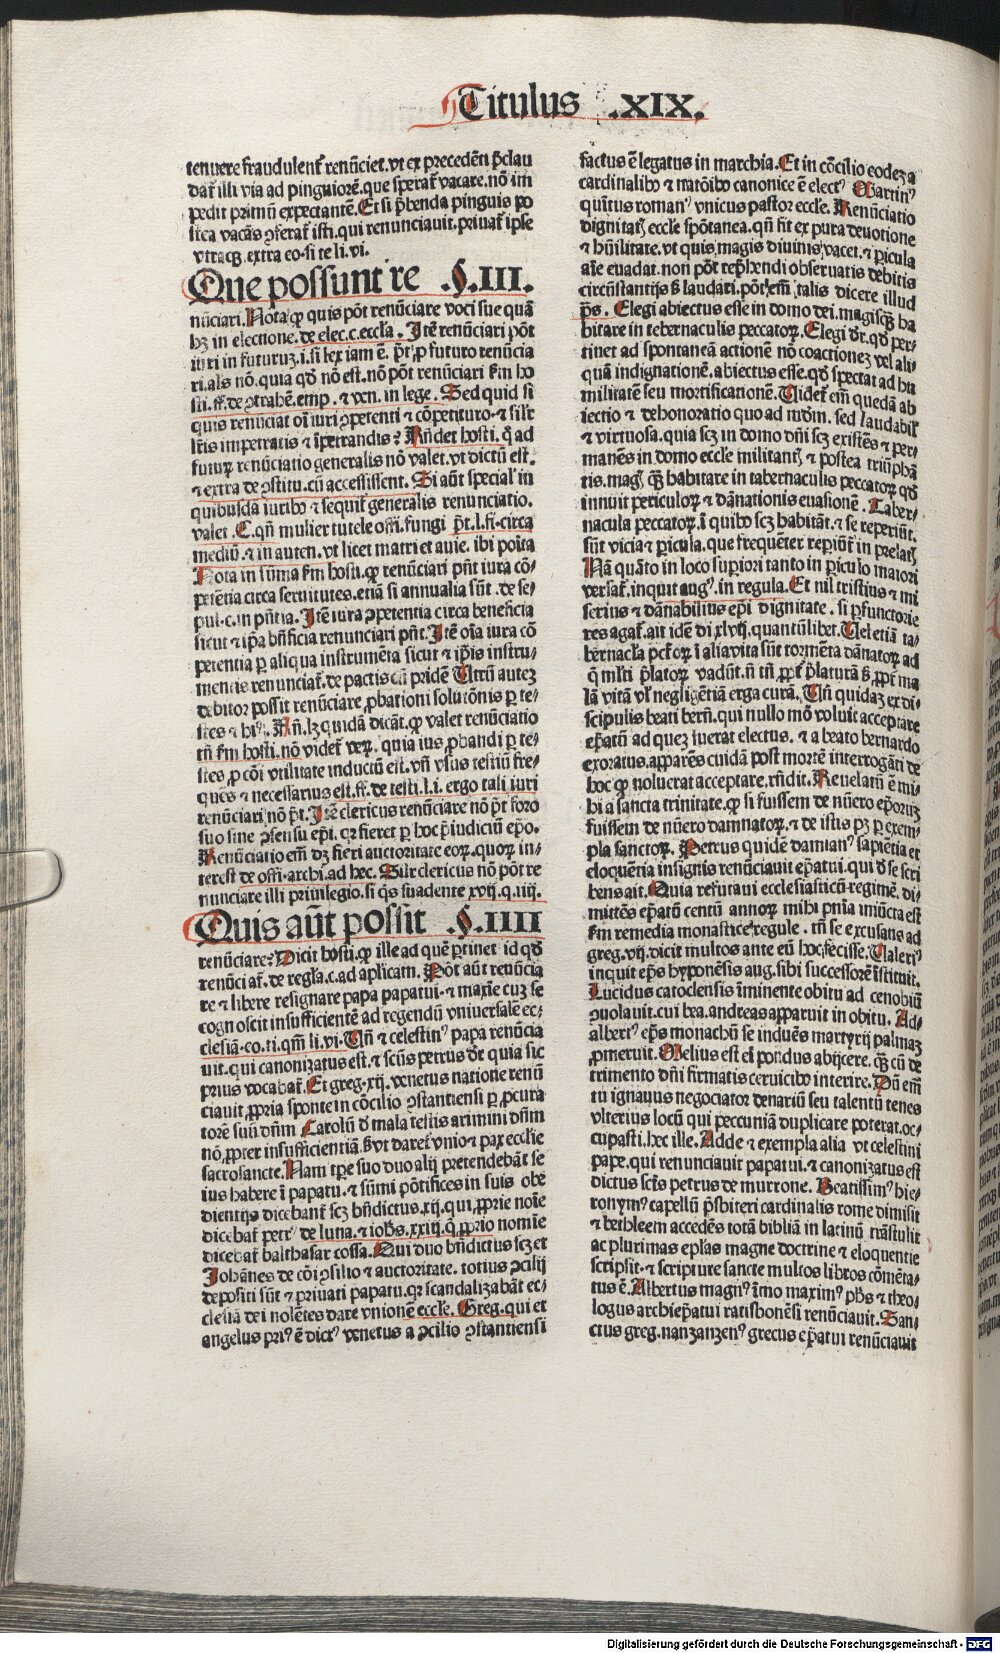 Titulus .XIX.
tenuere fraudulent̄ renūciet. vt ex precedēti p̄clau
dat̄ illi via ad pinguiorē. que sperat̄ vacare. nō im
pedit primū expectantē. Et si p̄benda pinguis po
stea vacās ɔferat̄ isti. qui renunciauit. priuat̄ ipse
vtracꝫ. extra eo. si te li. vi.
Que possunt re .§.III.
nūciari. Nota ꝙ quis pōt renūciare voci sue quā
hꝫ in electione. de elec. c. eccl̄ia. Itē renūciari pōt
iuri in futuruꝫ. i. si lex iam ē. p̄t ꝓ futuro renūcia
ri. als nō. quia qd̄ nō est. nō pōt renūciari f̄m ho
sti. ff. de ɔtrahē. emp. ⁊ ven. in lege. Sed quid si
quis renūciat oī iuri ɔpetenti ⁊ cōpetituro. ⁊ sil̄r
lr̄is impetratis ⁊ īpetrandis? Rn̄det hosti. q̄ ad
futuꝝ renūciatio generalis nō valet. vt dictū est.
⁊ extra de ɔstitu. cū accessissent. Si aūt special̄ in
quibusdā iuribꝰ ⁊ sequit̄ generalis renunciatio.
valet. C. qn̄ mulier tutele offi. fungi p̄t. l. fi. circa
mediū. ⁊ in auten. vt licet matri et auie. ibi posita
Nota in sūma f̄m hosti. ꝙ renūciari pn̄t iura cō-
petētia circa seruitutes. etiā si annualia sūt. de se-
pul. c. in pn̄tia. Itē iura ɔpetentia circa beneficia
sicut ⁊ ip̄a bn̄ficia renunciari pn̄t. Itē oīa iura cō
petentia ꝑ aliqua instrumēta sicut ⁊ ip̄is instru-
mentis renunciat̄. de pactis cū pridē Utrū auteꝫ
debitor possit renūciare ꝓbationi solutōnis ꝑ te-
stes ⁊ hiꝰ. Rn̄. lꝫ quidā dicāt. ꝙ valet renūciatio
tn̄ f̄m hosti. nō videt̄ veꝝ. quia ius ꝓbandi ꝑ te-
stes ꝓ cōi vtilitate inductū est. vn̄ vsus testiū fre-
quēs ⁊ necessarius est. ff. de testi. l. i. ergo tali iuri
renūciari nō p̄t. Itē clericus renūciare nō p̄t foro
suo sine ɔsensu ep̄i. qꝛ fieret ꝑ hoc p̄iudiciū ep̄o.
Renūciatio em̄ dꝫ fieri auctoritate eoꝝ. quoꝝ in-
terest de offi. archi. ad hec. Sil̄r clericus nō pōt re
nunciare illi priuilegio. si q̄s suadente xvij. q. iiij.
Quis aūt possit .§.IIII
renūciare? Dicit hosti. ꝙ ille ad quē ꝑtinet id qd̄
renūciat̄. de regl̄a. c. ad ap̄licam. Pōt aūt renūcia
re ⁊ libere resignare papa papatui. ⁊ maxīe cuꝫ se
cognoscit insufficientē ad regendū vniuersalē ec-
clesiā. eo. ti. qm̄ li. vi. Un̄ ⁊ celestinꝰ papa renūcia
uit. qui canonizatus est. ⁊ scūs petrus dr̄ quia sic
prius vocabat̄. Et greg. xij. venetus natione renū
ciauit ꝓpria sponte in cōcilio ɔstantiensi ꝑ ꝓcura
torē suū dn̄m Carolū d̄ mala testis arimini dn̄m
nō ꝓpter insufficientiā. s̄ vt daret̄ vnio ⁊ pax eccl̄ie
sacrosancte. Nam tꝑe suo duo alij pretendebāt se
ius habere ī papatu. ⁊ sūmi pōtifices in suis obe
dientijs dicebant̄ scꝫ bn̄dictus. xij. qui ꝓprie noīe
dicebat̄ petrꝰ de luna. ⁊ ioh̄s. xxiij. q̄ ꝓprio nomīe
dicebat̄ balthasar cossa. Qui duo bn̄dictus scꝫ et
Johānes de cōi ɔsilio ⁊ auctoritate. totius ɔcilij
depositi sūt ⁊ priuati papatu. qꝛ scandalizabāt ec-
clesiā dei nolētes dare vnionē eccl̄e. Greg. qui et
angelus priꝰ ē dictꝰ venetus a ɔcilio ɔstantiensi
factus ē legatus in marchia. Et in cōcilio eodeꝫ a
cardinalibꝰ ⁊ natōibꝰ canonice ē electꝰ Martinꝰ
quītus romanꝰ vnicus pastor eccl̄e. Renūciatio
dignitatꝭ eccl̄e spōtanea. qn̄ fit ex pura deuotione
⁊ hūilitate. vt quis magis diuinis vacet. ⁊ ꝑicula
aīe euadat. non pōt rep̄hendi obseruatis debitis
circūstantijs s̄ laudari. pōt em̄ talis dicere illud
p̄s. Elegi abiectus esse in domo dei. magisqꝫ ha
bitare in tabernaculis peccatoꝝ. Elegi dr̄. qd̄ per-
tinet ad spontaneā actionē nō coactioneꝫ vel ali-
quā indignationē. abiectus esse. qd̄ spectat ad hu
militatē seu mortificationē. Uidet̄ em̄ quedā ab
iectio ⁊ dehonoratio quo ad mūdm̄. sed laudabil̄
⁊ virtuosa. quia scꝫ in domo dn̄i scꝫ existēs ⁊ per-
manēs in domo eccl̄e militantꝭ ⁊ postea triūphā
tis. magꝭ qꝫ habitare in tabernaculis peccatoꝝ qd̄
innuit periculoꝝ ⁊ dānationis euasionē. Taber-
nacula peccatoꝝ. ī quibꝰ scꝫ habitāt. ⁊ se reperiūt.
sūt vicia ⁊ ꝑicula. que frequēter reꝑiūt̄ in prelatꝭ
Nā quāto in loco suꝑiori tanto in ꝑiculo maiori
versat̄. inquit augꝰ. in regula. Et nil tristius ⁊ mi
serius ⁊ dānabilius ep̄i dignitate. si ꝑfunctorie
res agat̄. ait idē di. xlvij. quantūlibet. Uel etiā ta-
bernacl̄a pctōꝝ ī alia vita sūt tormēta dānatoꝝ ad
q̄ ml̄ti p̄latoꝝ vadūt. n̄ tn̄ ꝓpt̄ p̄laturā s̄ ꝓpt̄ ma
lā vitā vl̄ negligētiā erga curā. Un̄ quidaꝫ ex di-
scipulis beati bern̄. qui nullo mō voluit acceptare
ep̄atū ad queꝫ fuerat electus. ⁊ a beato bernardo
exoratus. apparēs cuidā post mortē interrogāti de
hoc ꝙ noluerat acceptare. rn̄dit. Reuelatū ē mi-
hi a sancta trinitate. ꝙ si fuissem de nūero ep̄oruꝫ
fuissem de nūero damnatoꝝ. ⁊ de istis pꝫ ꝑ exem-
pla sanctoꝝ. Petrus quidē damianꝰ sapiētia et
eloquētia insignis renūciauit ep̄atui. qui d̄ se scri
bens ait. Quia refutaui ecclesiasticū regimē. di-
mittēs ep̄atū centū annoꝝ mihi pn̄ia iniūcta est
f̄m remedia monastice regule. tn̄ se excusans ad
greg. vij. dicit multos ante eū hoc fecisse. Ualeriꝰ
inquit ep̄s hyponēsis aug. sibi successorē īstituit.
Lucidus catoclensis īminente obitu ad cenobiū
ɔuolauit. cui bea. andreas apparuit in obitu. Ad-
albertꝰ ep̄s monachū se induēs martyrij palmaꝫ
ꝓmeruit. Melius est eī pondus abijcere. qꝫ cū de
trimento dn̄i firmatis ceruicibꝰ interire. Dū em̄
tu ignauus negociator denariū seu talentū tenes
vlterius locū qui peccuniā duplicare poterat. oc-
cupasti. hec ille. Adde ⁊ exempla alia vt celestini
pape. qui renunciauit papatui. ⁊ canonizatus est
dictus sct̄s petrus de murrone. Beatissimꝰ hie-
ronymꝰ capellū p̄sbiteri cardinalis rome dimisit
⁊ bethleem accedēs totā bibliā in latinū trāstulit
ac plurimas ep̄las magne doctrine ⁊ eloquentie
scripsit. ⁊ scripture sancte multos libros cōmēta-
tus ē. Albertus magnꝰ īmo maximꝰ ph̄s ⁊ theo-
logus archiep̄atui ratisbonēsi renūciauit. San-
ctus greg. nanzanzenꝰ grecus ep̄atui renūciauit
Digitalisierung gefördert durch die Deutsche Forschungsgemeinschaft - DFG